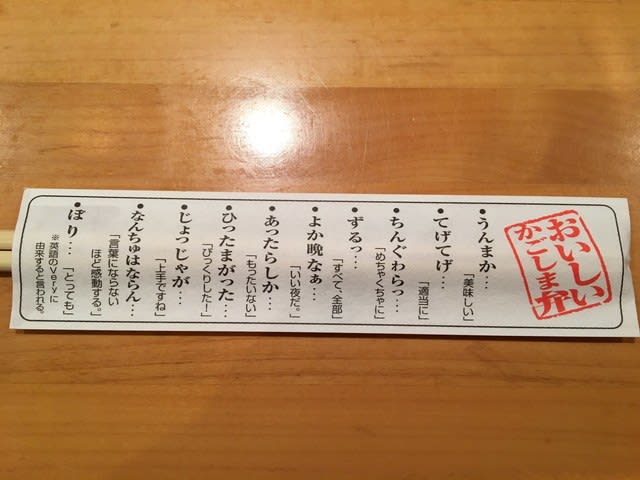 おいしい
かごしま弁
●うんまか…
「美味しい」
●てげてげ…
「適当に」
●ちんぐわらっ…
「めちゃくちゃに」
●ずるっ…
「すべて、全部」
●よか晩なぁ…
「いい夜だ。」
●あったらしか…
「もったいない」
●ひったまがった…
「びっくりした!」
●じょっじゃが…
「上手ですね」
●なんちゅはならん…
「言葉にならない
ほど感動する。」
●ぼり…
「とっても」
※英語のVeryに
由来すると言われる。